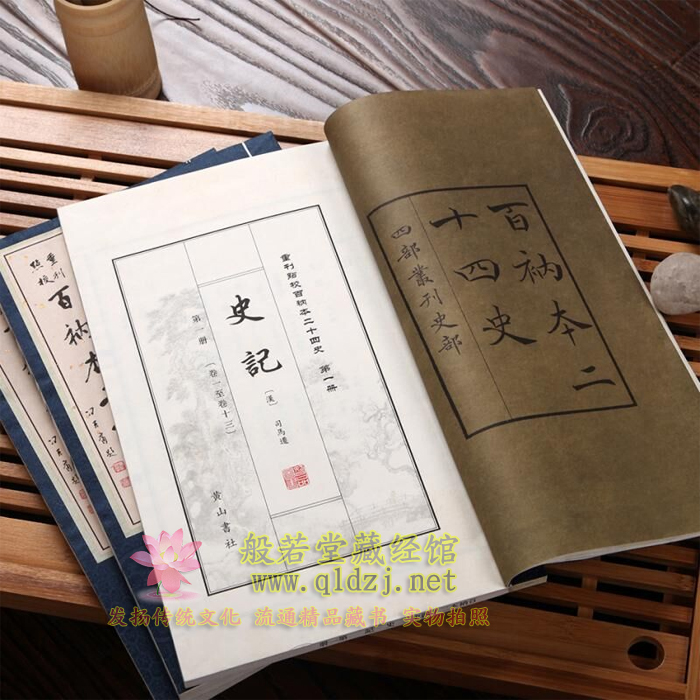 百衲本二
十四史
四部叢刊史部
重刊點校百衲本二十四史 第一册
史記
〔漢〕 司馬遷
第一册 (卷一至卷十三)
黄山書社
重刊
點校
百衲本
般若堂藏经馆
www.qldzj.net
发扬传统文化 流通精品藏书 实物拍照